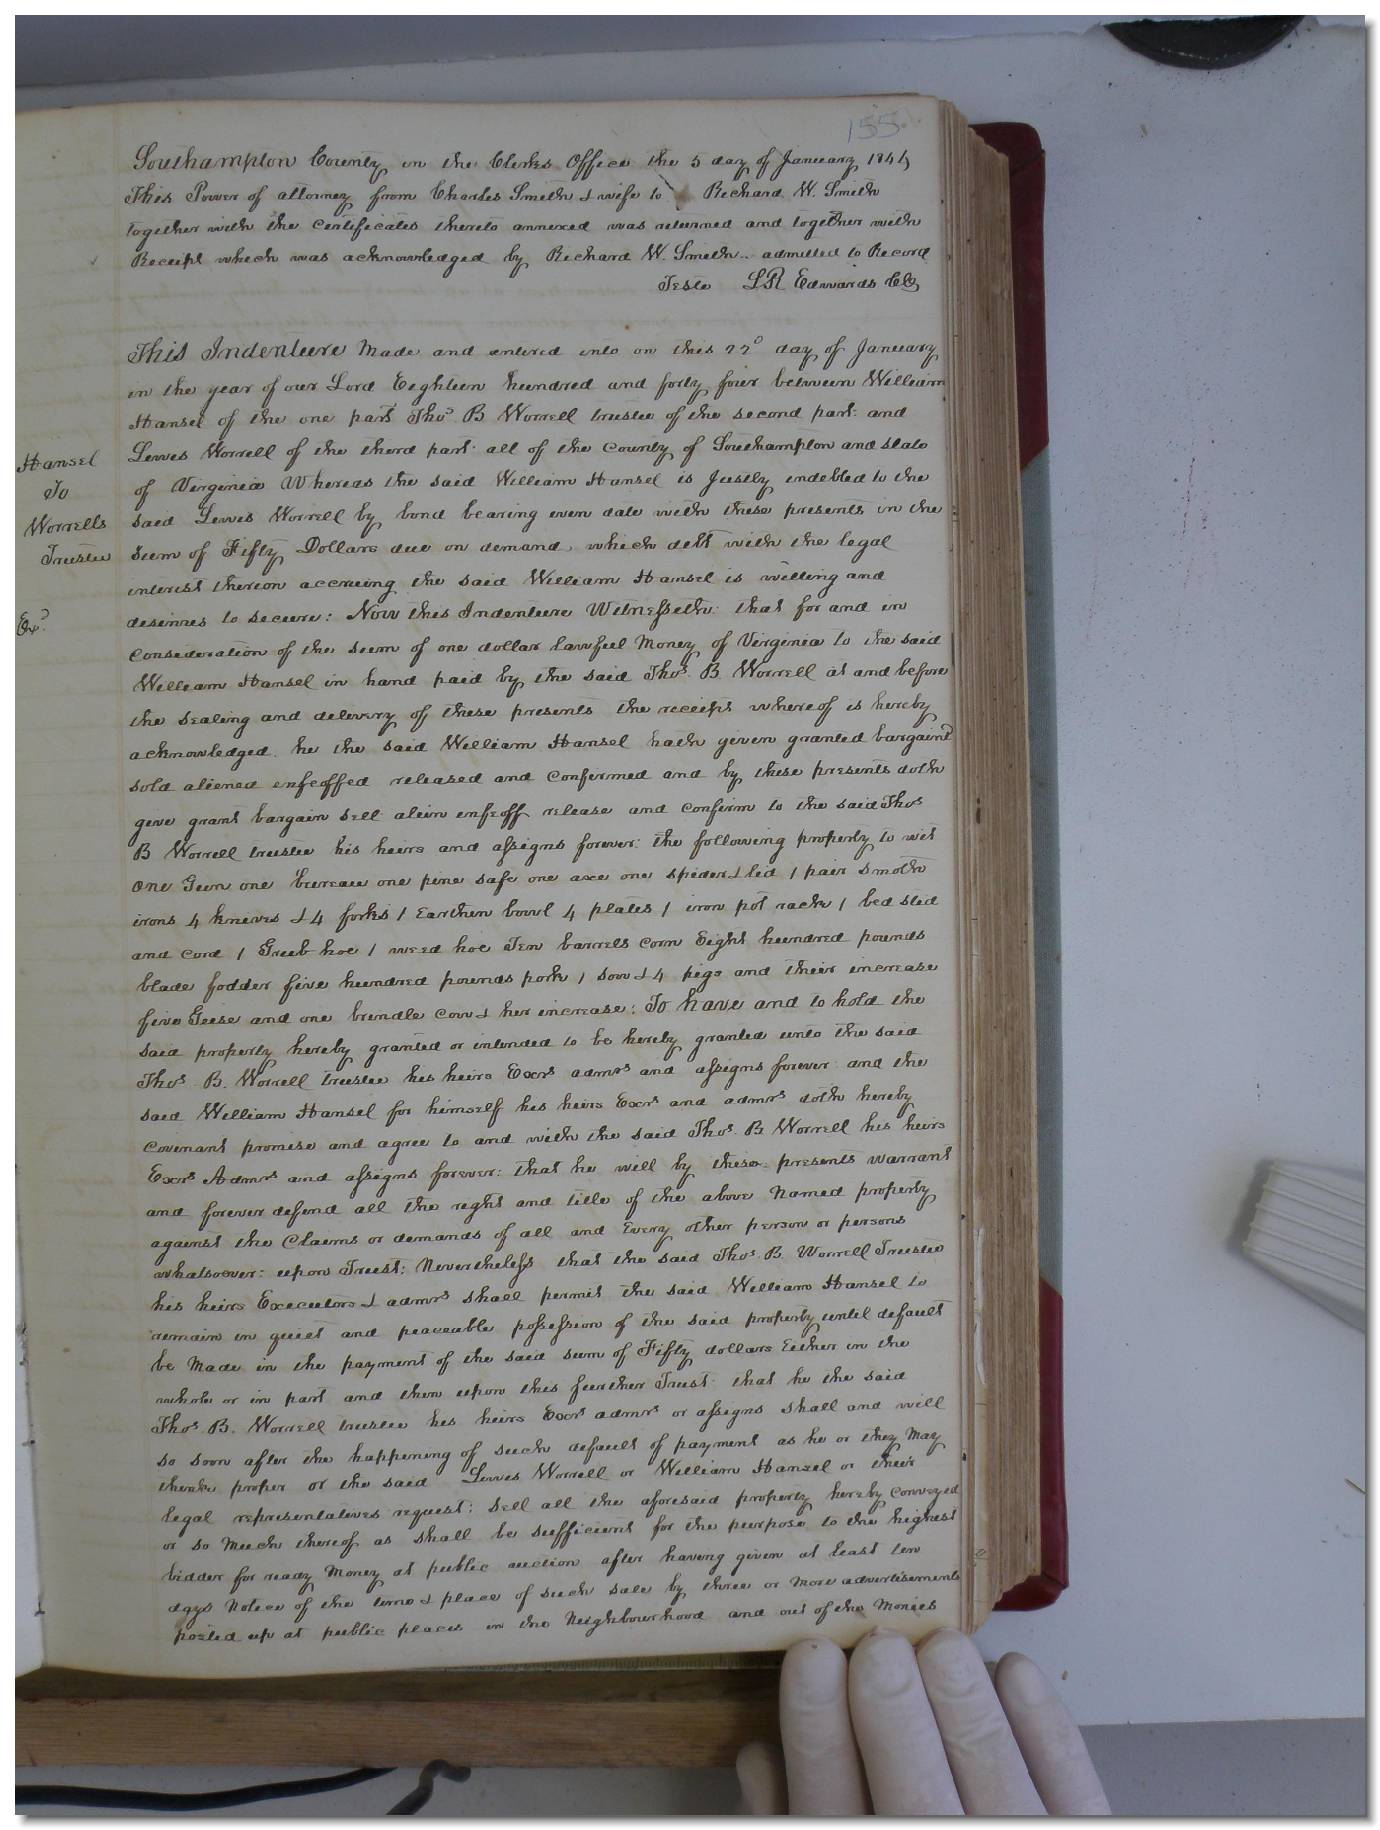 155
Southampton County in the Clerks Office the 5 day of January 1844
This Power of attorney from Charles Smith & wife to Richard W. Smith
together with the certificates thereto annexed was returned and together with
Receipt which was acknowledged by Richard W. Smith.. admitted to Record
Teste LR Edwards Clk
This Indenture Made and entered into on this 22d day of January
in the year of our Lord Eighteen hundred and forty four between William
Hansel of the one part Thos B Worrell trustee of the second part and
Lewes Worrell of the therd part all of the County of Southampton and state
of Virginia Whereas the said William Hansel is Justly indebted to the
said Lewes Worrell by bond bearing even date with these presents in the
sum of Fifty Dollars due on demand which debt with the legal
interest thereon accruing the said William Hansel is willing and
desirues to secure: Now this Indenture Witnesseth that for and in
consideration of the sum of one dollar lawful Money of Virginia to the said
William Hansel in hand paid by the said Thos B Worrell at and before
the sealing and delivery of these presents the receipt whereof is hereby
acknowledged he the said William Hansel hath given granted bargaind
sold aliened enfeoffed released and confirmed and by these presents doth
give grant bargain sell alein enfeoff release and confirm to the said Thos
B Worrell trustee his heirs and assigns forever: the following property to wit
one Gun one bureau one pine safe one axe one spider & lid 1 pair smoth
irons 4 knives & 4 forks 1 Earthen bowl 4 plates 1 iron pot rack 1 bed sted
and cord 1 Grub hoe 1 weed hoe Ten barrels corn Eight hundred pounds
blade fodder five hundred pounds pork 1 sow & 4 pigs and their increase
five Geese and one brindle cow & her increase: To have and to hold the
said property hereby granted or intended to be hereby granted unto the said
Thos B. Worrell trustee his heirs Exrs admrs and assigns forever and the
said William Hansel for himself his heirs Exrs and admrs doth hereby
covenant promise and agree to and with the said Thos. B Worrell his heirs
Exrs Admrs and assigns forever: that he will by these presents warrant
and forever defend all the right and title of the above Named property
against the Claims or demands of all and Every other person or persons
whatsoever: upon Trust: Nevertheless that the said Thos. B. Worrell Trustee
his heirs Executors & admrs shall permit the said William Hansel to
remain in quiet and peaceable possession of the said property until default
be Made in the payment of the said sum of Fifty dollars Either in the
whole or in part and then upon this further Trust that he the said
Thos. B. Worrell trustee his heirs Exrs admrs or assigns shall and will
so soon after the happening of such default of payment as he or they May
think proper or the said Lewes Worrell or William Hansel or their
legal representatives request: sell all the aforesaid property hereby conveyed
or so Much thereof as shall be sufficient for the purpose to the highest
bidder for ready Money at public auction after having given at least ten
days Notice of the time & place of such sale by three or More advertisements
posted up at public places in the Neighbourhood and out of the Monies
Hansel
To
Worrells
Trustee
Exd